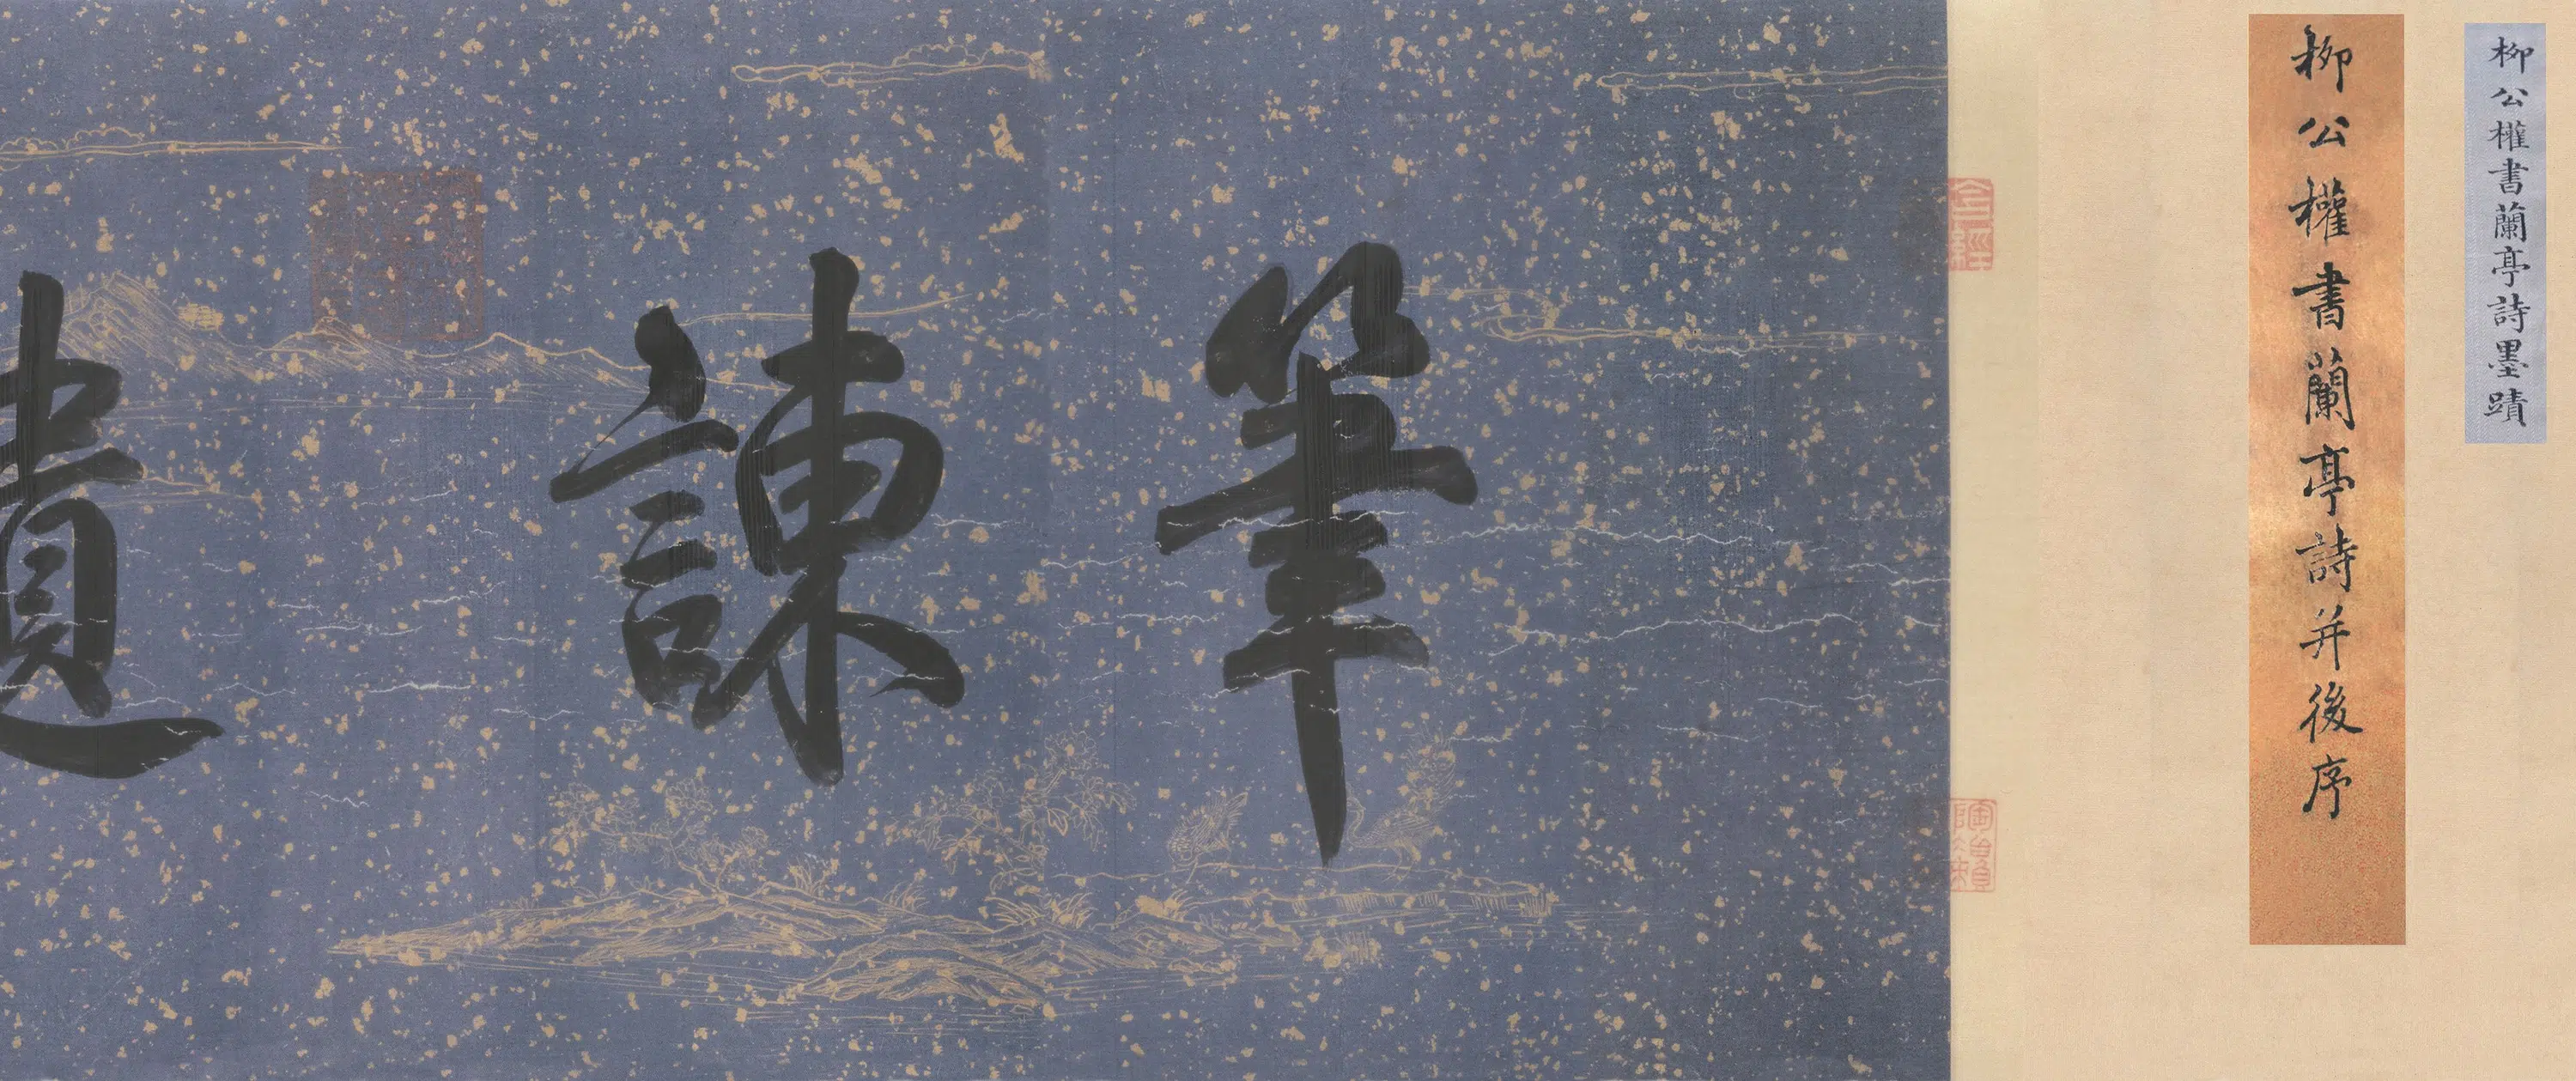 柳公權書蘭亭詩墨蹟
柳公權書蘭亭詩并後序
筆諫遺